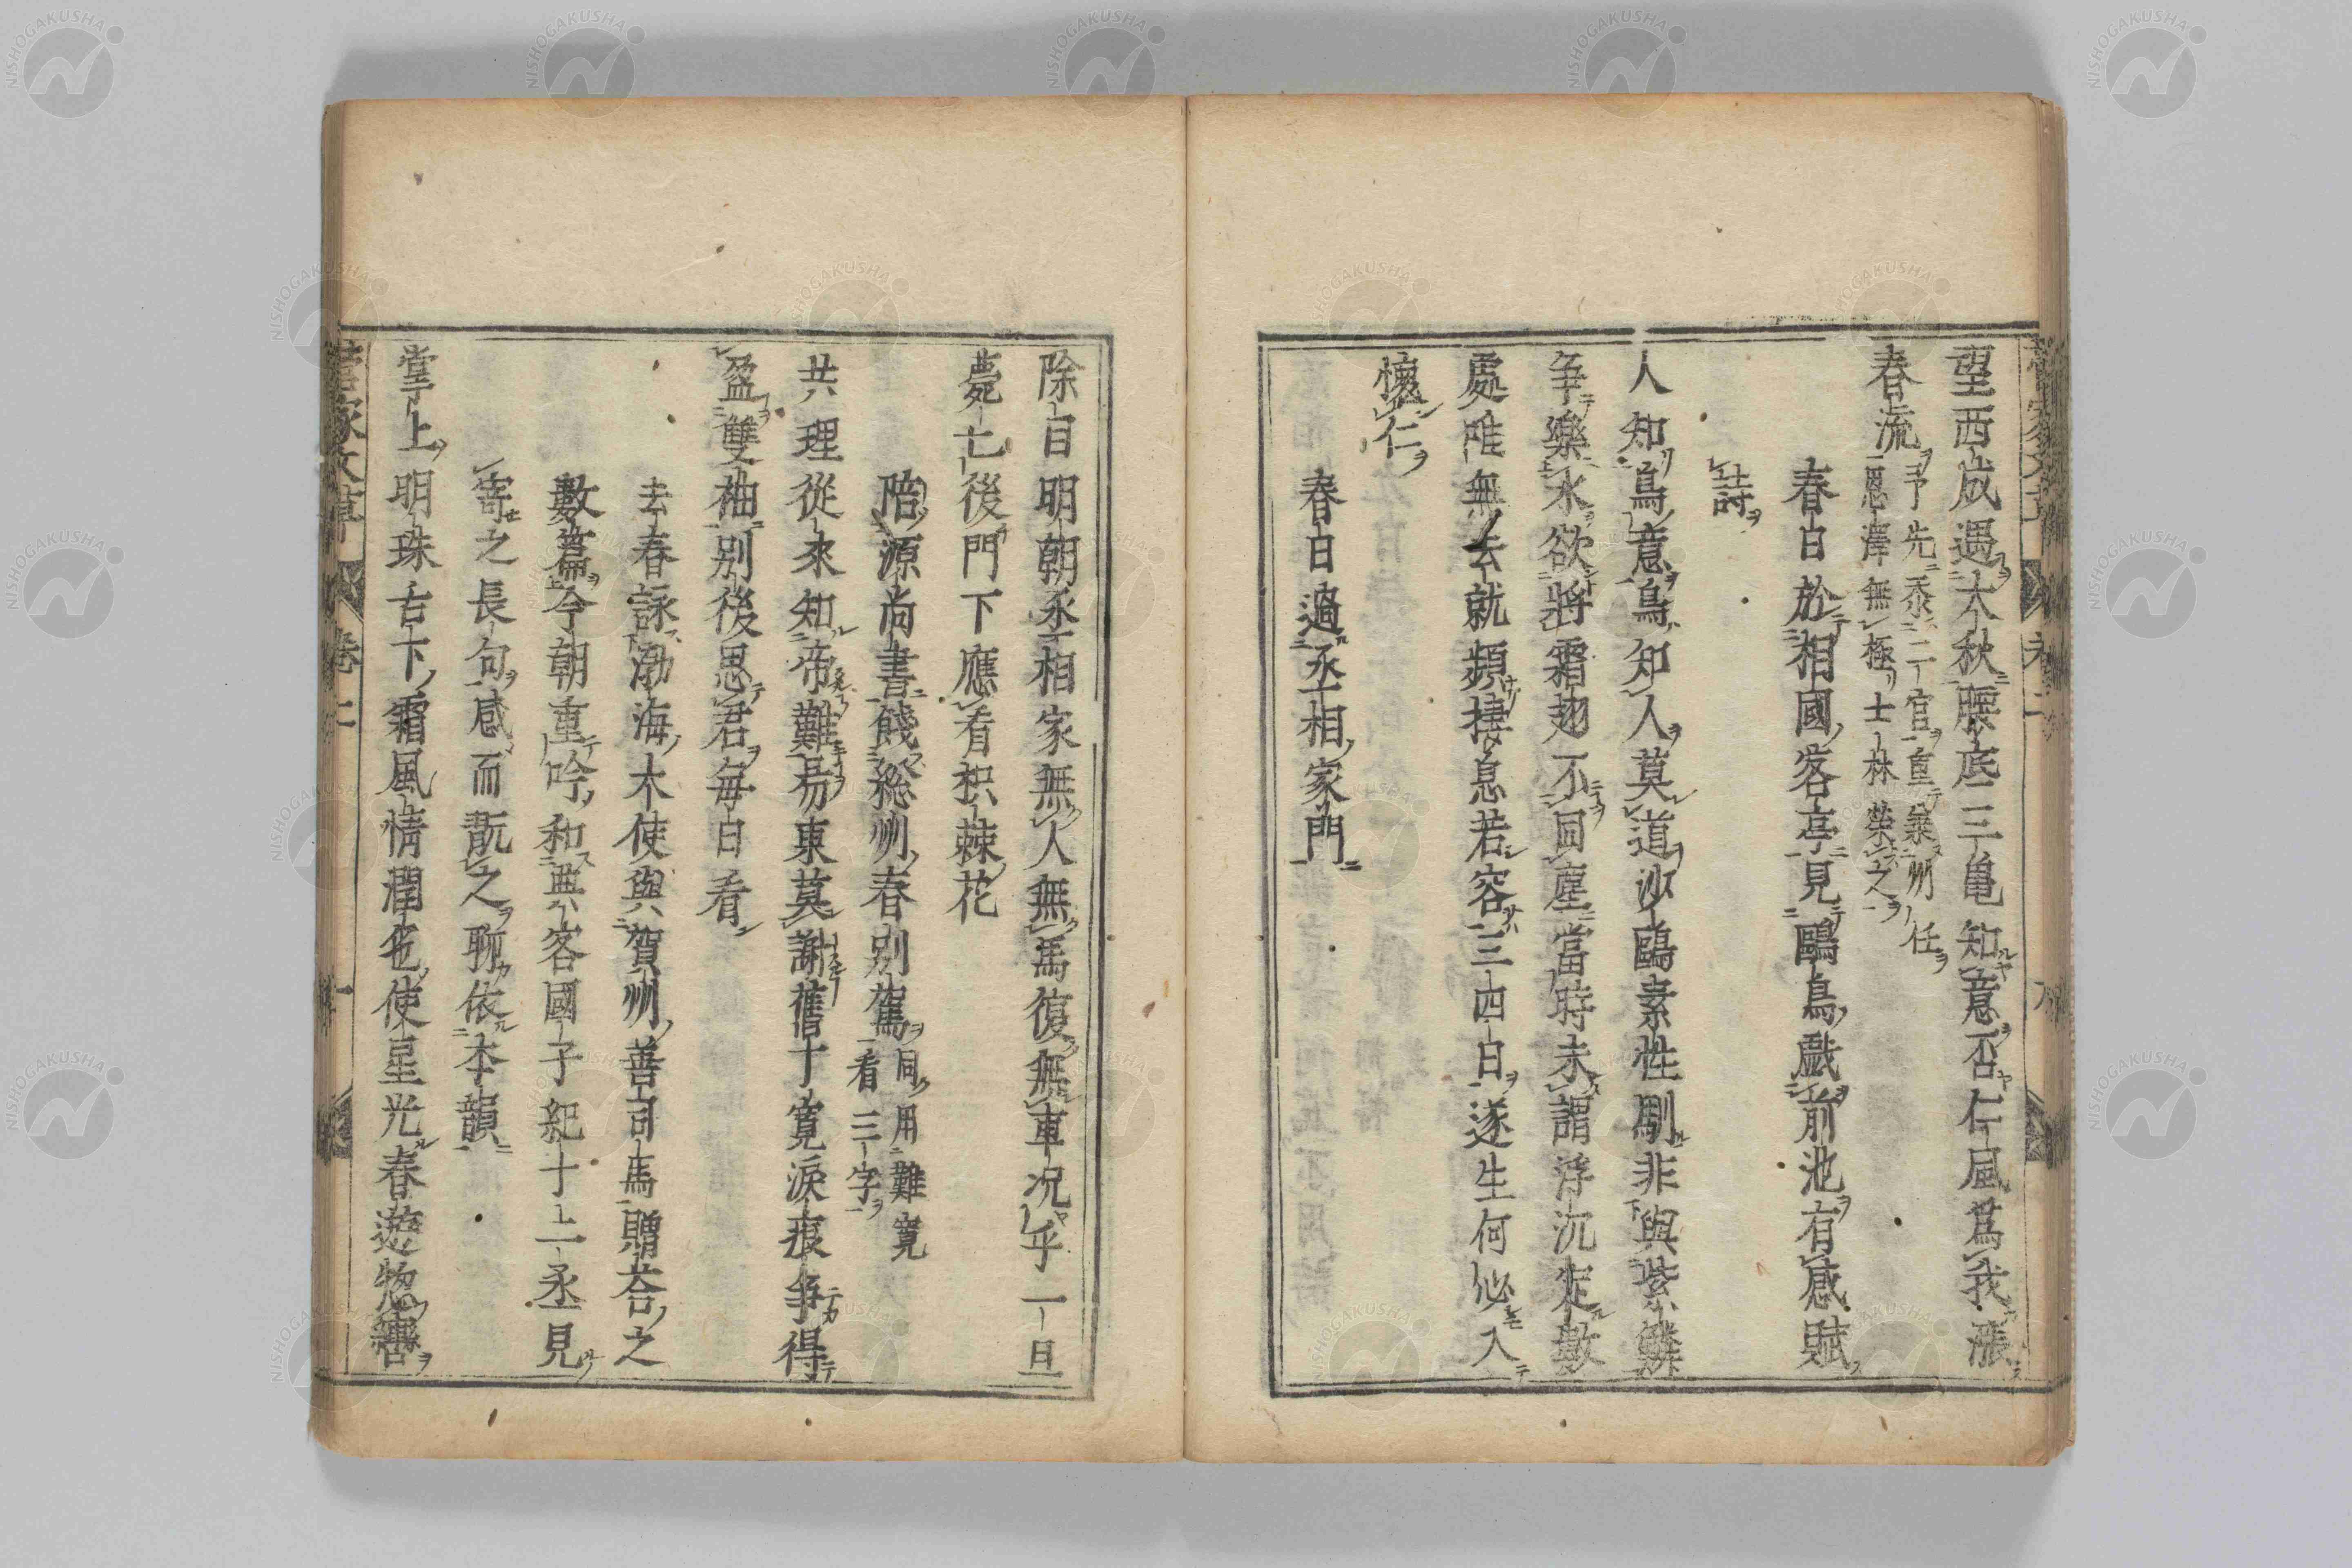 望西成遇大秋腰底三亀知意否仁風爲我漲
春流予先忝二官重兼州任
恩澤無極士林榮之
春日於相國客亭見鷗鳥戲前池有感賦
詩
人知鳥意鳥知人莫道沙鷗素性馴非與紫鱗
爭樂水欲將霜翅不回塵當時未謂浮沉定數
處唯無去就頻棲息若容三四日遂生何必入
懷仁
春日過丞相家門
除目明朝丞相家無人無馬復無車況乎一旦
薨亡後門下應看枳棘花
陪源尚書餞総州春別駕同用難寬
看三字
共理從來知帝難易東莫謝舊十寬淚痕爭得
盈雙袖別後思君每日看
去春詠渤海大使與賀州善司馬贈荅之
數篇今朝重吟和典客國子紀十二丞見
寄之長句感而翫之聊依本韻
掌上明珠舌下霜風情潤色使星光春遊惣轡
菅家文草 卷二 十
NISHOGAKUSHA